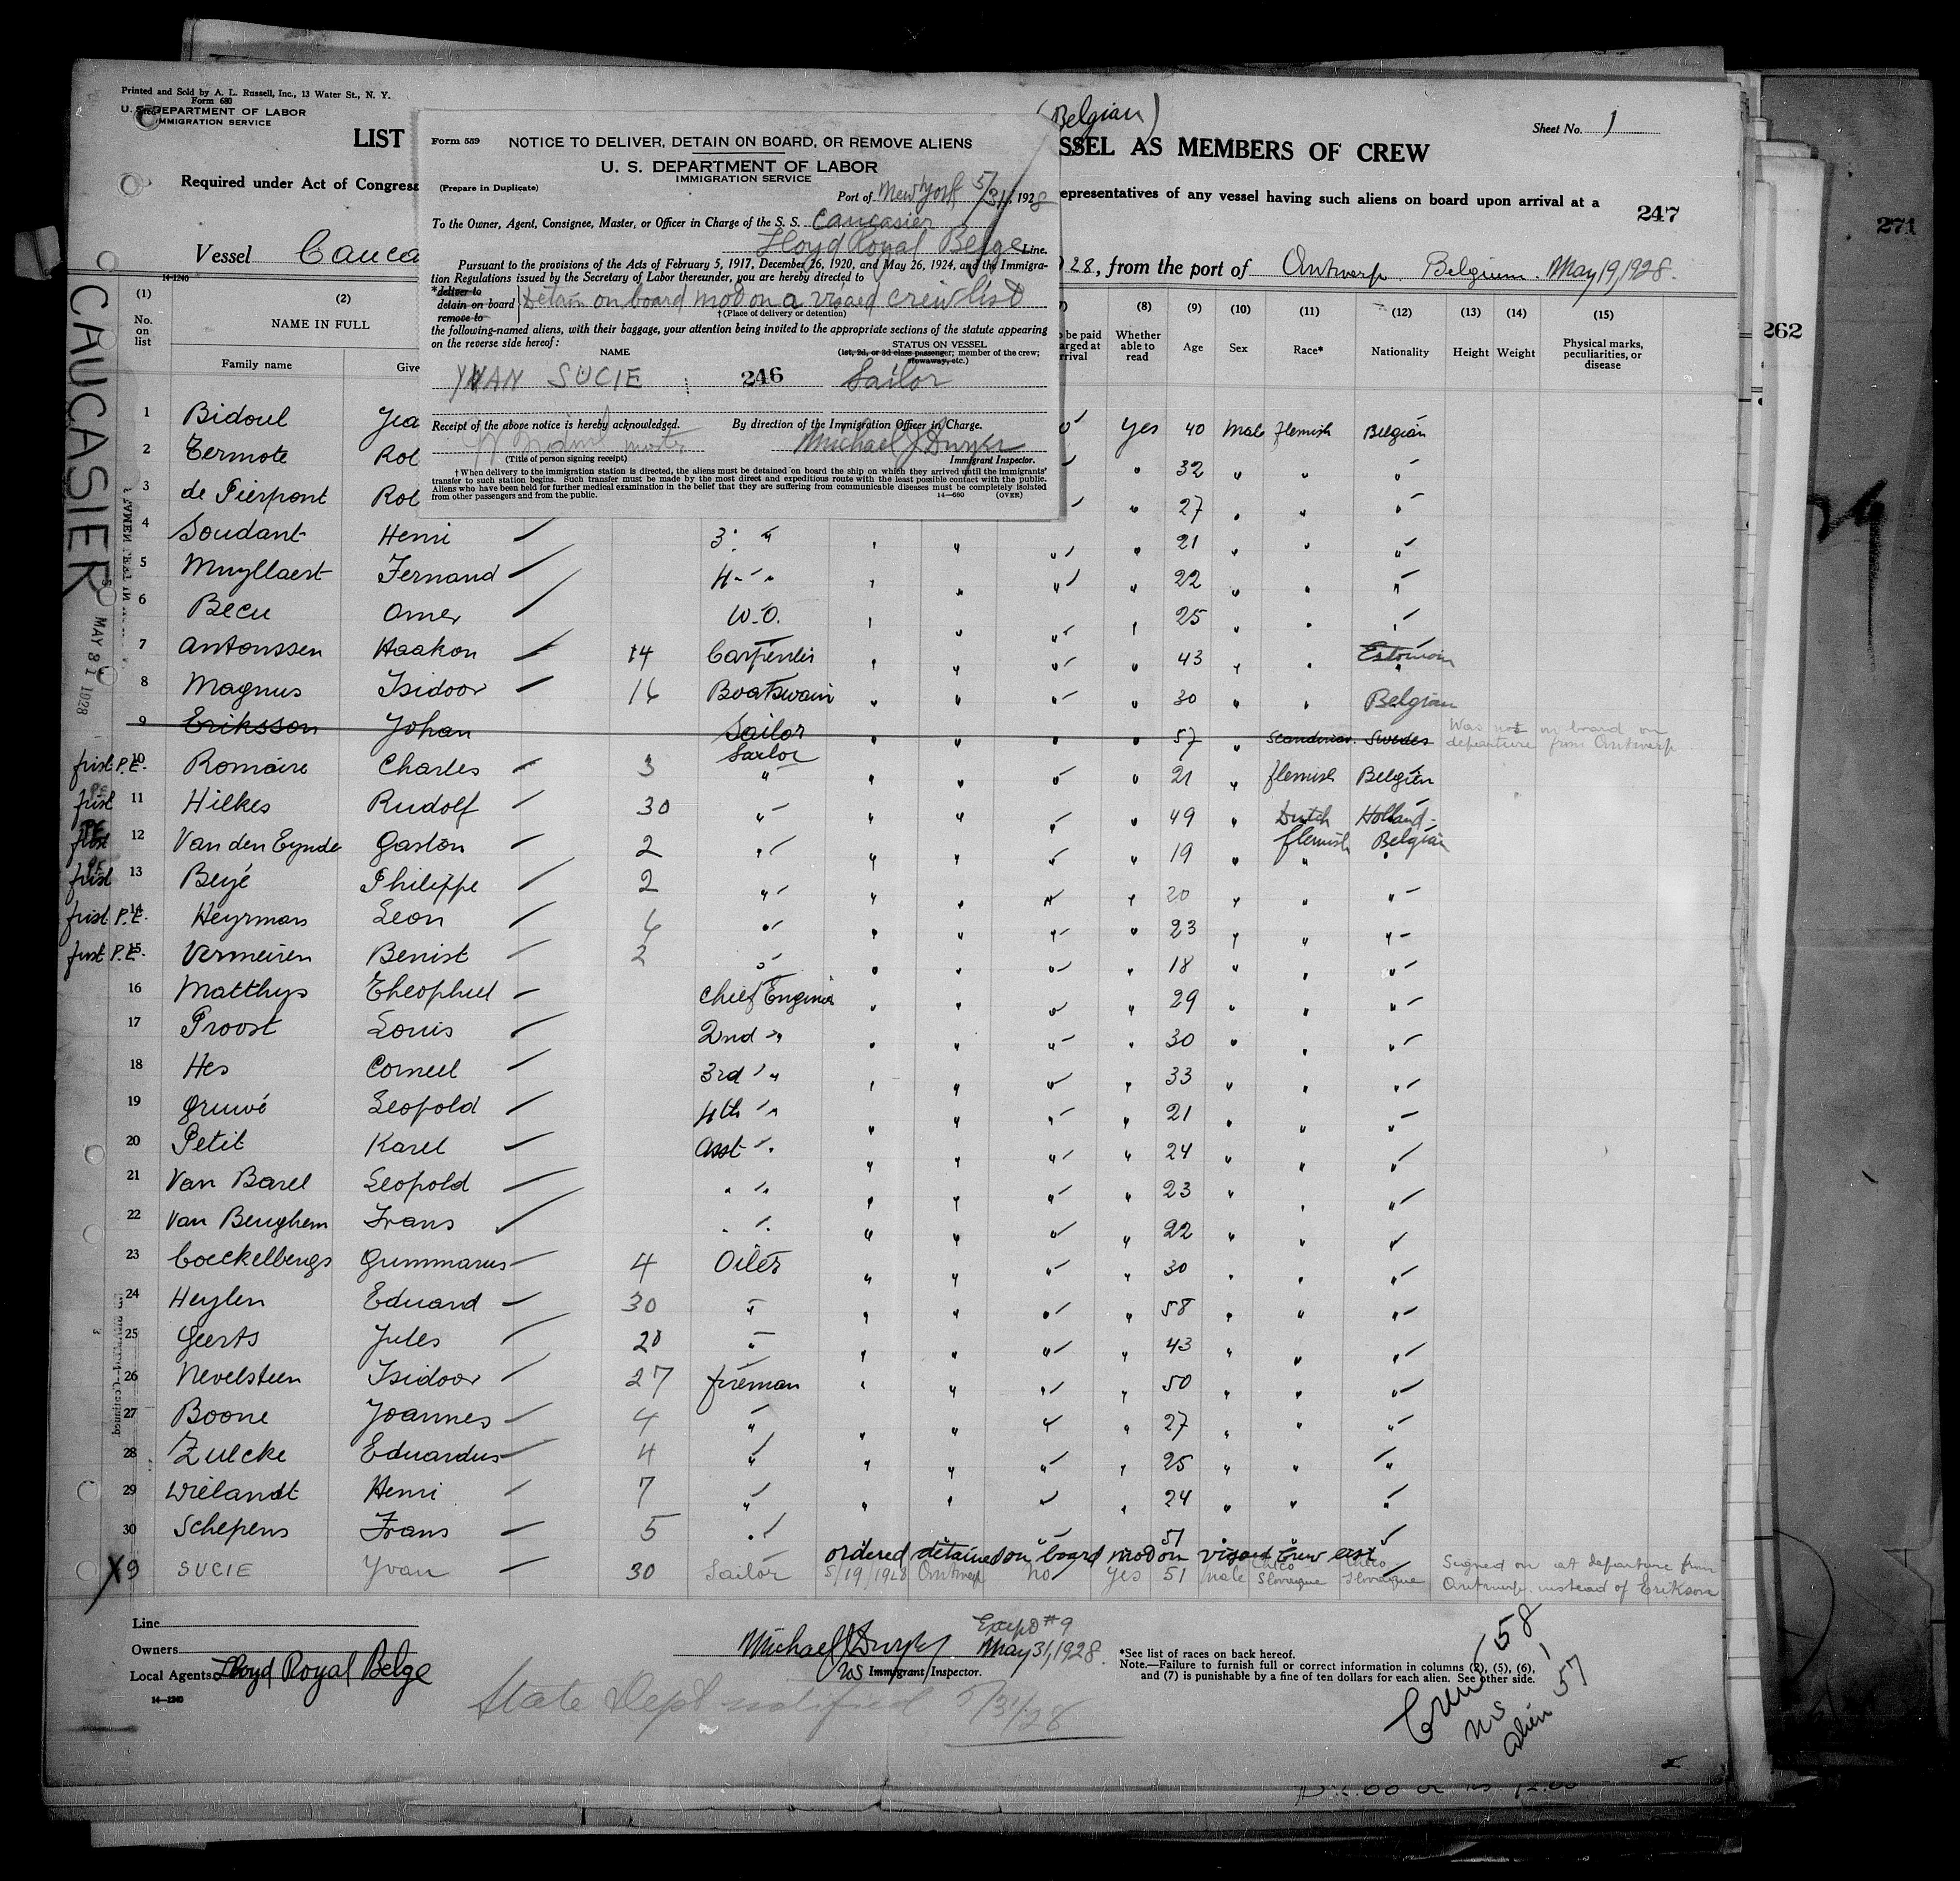 Printed and Sold by A. L. Russell, Inc., 13 Water St., N. Y.
Form 680
U. S. DEPARTMENT OF LABOR
IMMIGRATION SERVICE
(Belgian)
Sheet No. 1
LIST
SSEL AS MEMBERS OF CREW
Required under Act of Congress
epresentatives of any vessel having such aliens on board upon arrival at a
247
271
262
Vessel Cauca
28, from the port of Antwerp Belgium. May 19, 1928.
14-1240
Form 559 NOTICE TO DELIVER, DETAIN ON BOARD, OR REMOVE ALIENS
U. S. DEPARTMENT OF LABOR
IMMIGRATION SERVICE
(Prepare in Duplicate)
Port of New York 5/31, 1928
To the Owner, Agent, Consignee, Master, or Officer in Charge of the S. S. Caucasier
Lloyd Royal Belge Line.
Pursuant to the provisions of the Acts of February 5, 1917, December 26, 1920, and May 26, 1924, and the Immigra-
tion Regulations issued by the Secretary of Labor thereunder, you are hereby directed to
*deliver to
detain on board Detain on board mod on a visaed crew list
remove to †(Place of delivery or detention)
the following-named aliens, with their baggage, your attention being invited to the appropriate sections of the statute appearing
on the reverse side hereof:
NAME STATUS ON VESSEL
(1st, 2d, or 3d class passenger; member of the crew;
stowaway, etc.)
YVAN SUCIE : 246 Sailor
Receipt of the above notice is hereby acknowledged. By direction of the Immigration Officer in Charge.
Michael J Dwyer
(Title of person signing receipt) Immigrant Inspector.
†When delivery to the immigration station is directed, the aliens must be detained on board the ship on which they arrived until the immigrants'
transfer to such station begins. Such transfer must be made by the most direct and expeditious route with the least possible contact with the public.
Aliens who have been held for further medical examination in the belief that they are suffering from communicable diseases must be completely isolated
from other passengers and from the public. 14—660 (OVER)
(1) (2) (8) (9) (10) (11) (12) (13) (14) (15)
No. on list NAME IN FULL be paid arged at rrival Whether able to read Age Sex Race* Nationality Height Weight Physical marks, peculiarities, or disease
Family name Give
CAUCASIER
MAY 31 1928
1 Bidoul Jea Yes 40 Male Flemish Belgian
2 Termote Rob " 32 " " "
3 de Pierpont Rob " 27 " " "
4 Soudant Henri 3. " " " " " 21 " " "
5 Muyllaert Fernand 4 " " " " " 22 " " "
6 Becu Omer W.O. " " " " 25 " " "
7 Antonssen Haakon 14 Carpenter " " " " 43 " " Estonian
8 Magnus Isidoor 16 Boatswain " " " " 30 " " Belgian
9 Eriksson Johan Sailor " " " " 57 " Scandinav. Swedes Was not on board on
departure from Antwerp
first P.E. 10 Romaire Charles 3 Sailor " " " " " 21 " flemish Belgien
first P.E. 11 Hilkes Rudolf 30 " " " " " 49 " Dutch Holland-
first P.E. 12 Van den Eynde Gaston 2 " " " " " 19 " flemish Belgian
first P.E. 13 Beyé Philippe 2 " " " " " 20 " " "
first P.E. 14 Heyrmans Leon 6 " " " " " 23 " " "
first P.E. 15 Vermeiren Benist 2 " " " " " 18 " " "
16 Matthys Theophiel Chief Engineer " " " " 29 " " "
17 Proost Louis 2nd " " " " " 30 " " "
18 Hes Corneel 3rd " " " " " 33 " " "
19 Gruwé Leopold 4th " " " " " 21 " " "
20 Petit Karel Asst " " " " " 24 " " "
21 Van Barel Leopold " " " " " " 23 " " "
22 Van Beughem Frans " " " " " " 22 " " "
23 Coeckelbergs Gummarus 4 Oiler " " " " 30 " " "
24 Heylen Eduard 30 " " " " " 58 " " "
25 Geerts Jules 20 " " " " " 43 " " "
26 Nevelsteen Isidoor 27 fireman " " " " 50 " " "
27 Boone Joannes 4 " " " " " 27 " " "
28 Zulcke Eduardus 4 " " " " " 25 " " "
29 Wielandt Henri 7 " " " " " 24 " " "
30 Schepens Frans 5 " " " 51
ordered detained on board mod on visaed crew list
X9 SUCIE Yvan 30 Sailor 5/19/1928 Antwerp no yes 51 male Checo Slovaque Checo Slovaque Signed on at departure from
Antwerp instead of Erikson
Line
Owners
Local Agents Lloyd Royal Belge
14—1240
Except #9
Michael J Dwyer May 31, 1928.
US Immigrant Inspector.
*See list of races on back hereof.
Note.—Failure to furnish full or correct information in columns (2), (5), (6),
and (7) is punishable by a fine of ten dollars for each alien. See other side.
State Dept notified 5/31/28
Crew 58
US 1
Alien 57